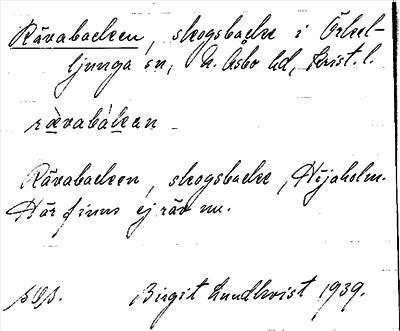 Rävabacken, skogsbacke i Örkel-
ljunga sn, N. Åsbo hd, Krist. l.
rävabákean
Rävabacken, skogsbacke, Höjaholm.
Här finns ej räv nu.
Birgit Lundkvist 1939.